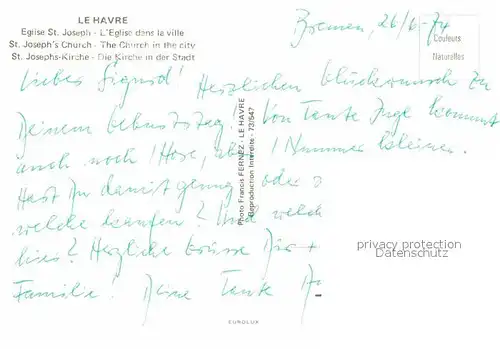 LE HAVRE
Eglise St. Joseph - L'Eglise dans la ville
St. Joseph's Church - The Church in the city
St. Josephs-Kirche - Die Kirche in der Stadt
Bremen, 26/6-74
Couleurs
Naturelles
Liebes Sigrid! Herzlichen Glückwunsch zu
Deinem Geburtstag! Von Tante Inge kommt
auch noch 1 Hose, aber 1 Nummer kleiner.
Hast Du damit genug oder
welche kaufen? Und welche
Herzliche Grüsse Dir +
Familie! Deine Tante
Photo Francis FERNEZ - LE HAVRE
Reproduction Interdite - 73/547
privacy protection
Datenschutz
EUROLUX